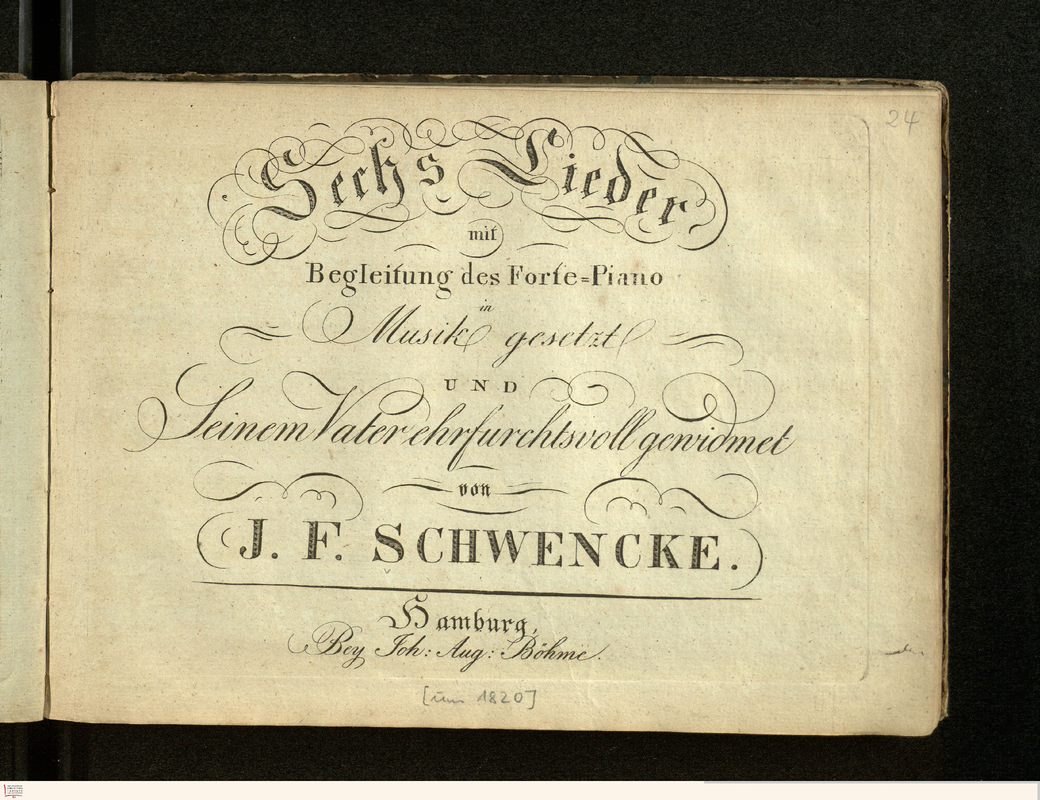 24
Sechs Lieder
mit
Begleitung des Forte=Piano
in
Musik gesetzt
UND
Seinem Vater ehrfurchtsvoll gewidmet
von
J. F. SCHWENCKE.
Hamburg,
Bey Joh: Aug: Böhme.
[um 1820]